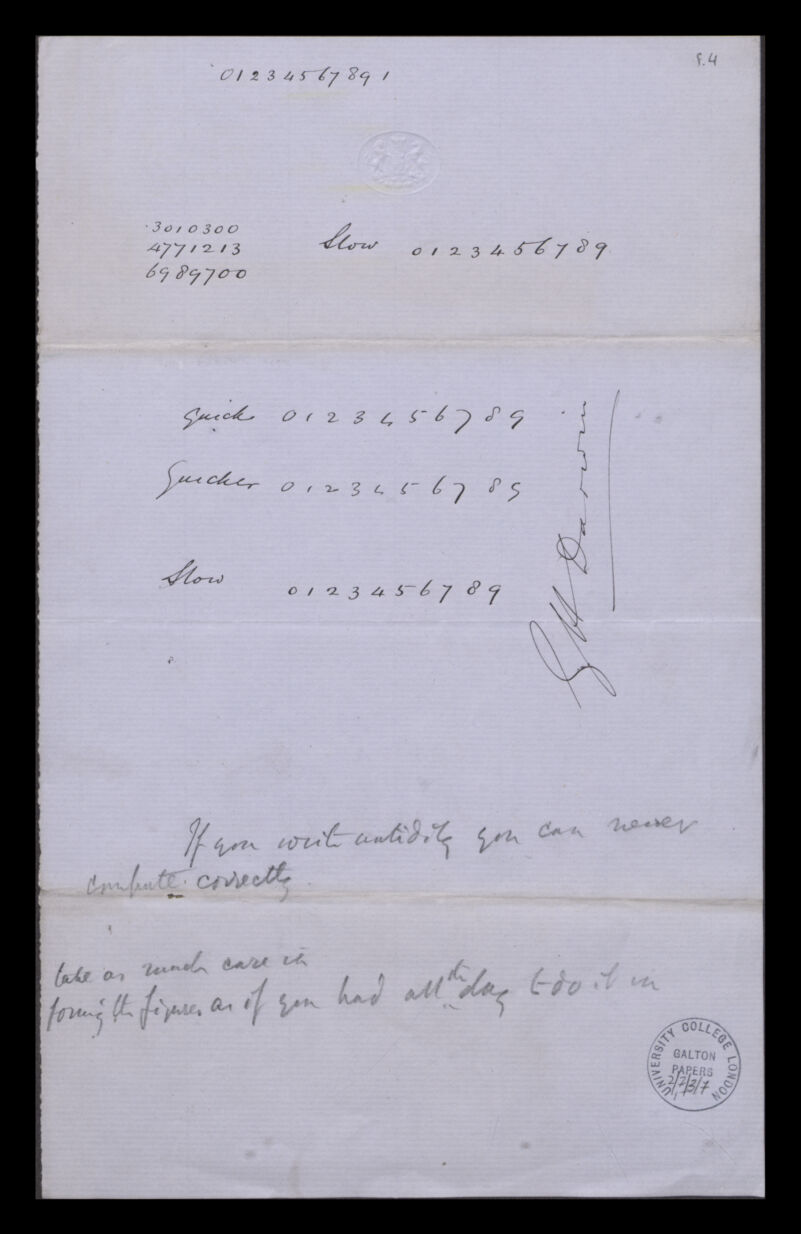 f.4
0 1 2 3 4 5 6 7 8 9 1
·3010300
4771213
6989700
Slow 0 1 2 3 4 5 6 7 8 9
quick 0 1 2 3 4 5 6 7 8 9
Quicker 0 1 2 3 4 5 6 7 8 9
Slow 0 1 2 3 4 5 6 7 8 9
G H Darwin
If you write untidily you can never
compute correctly.
take as much care in
forming the figures as if you had all the day to do it in
UNIVERSITY COLLEGE LONDON
GALTON
PAPERS
2/2/3/7